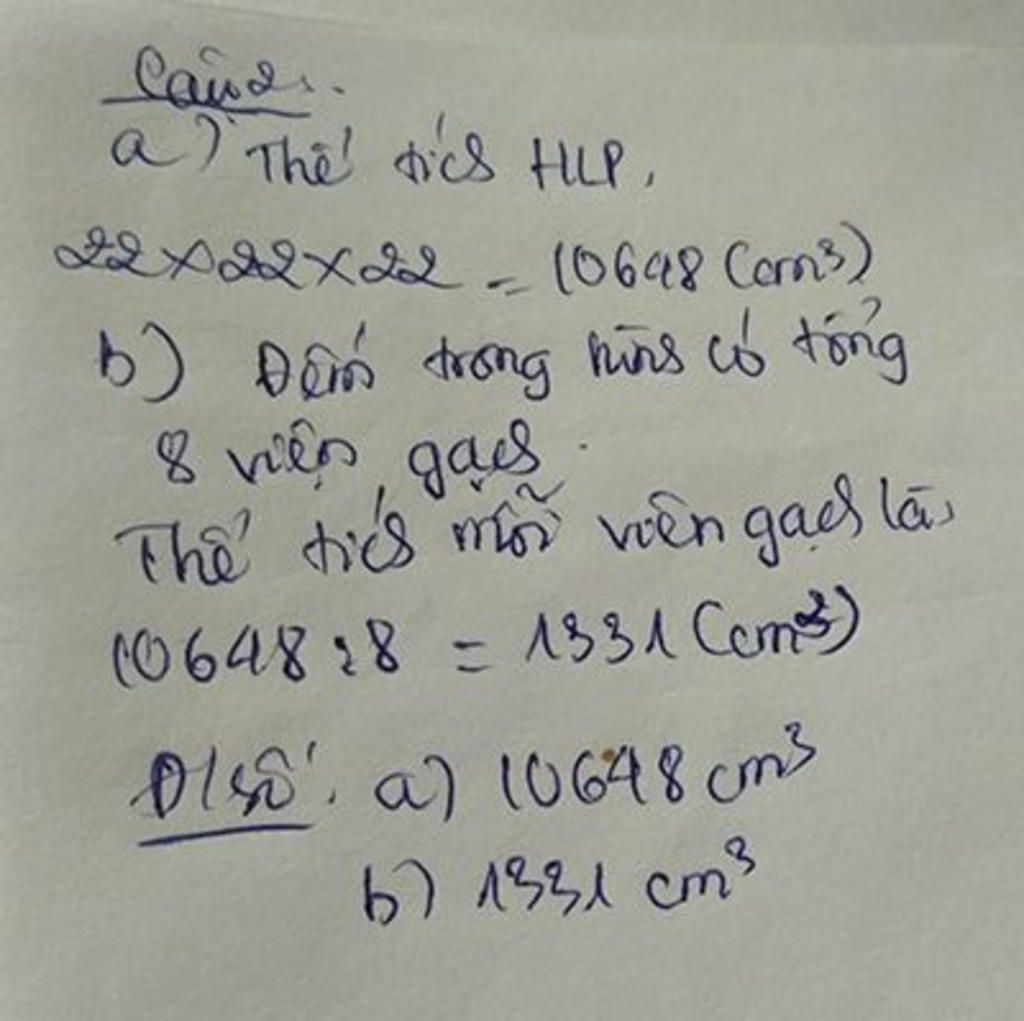 Câu 2:
a) Thể tích HLP,
22 x 22 x 22 = 10648 (cm³)
b) Đếm trong hình có tổng
8 viên gạch.
Thể tích mỗi viên gạch là,
10648 : 8 = 1331 (cm³)
Đ/số: a) 10648 cm³
b) 1331 cm³